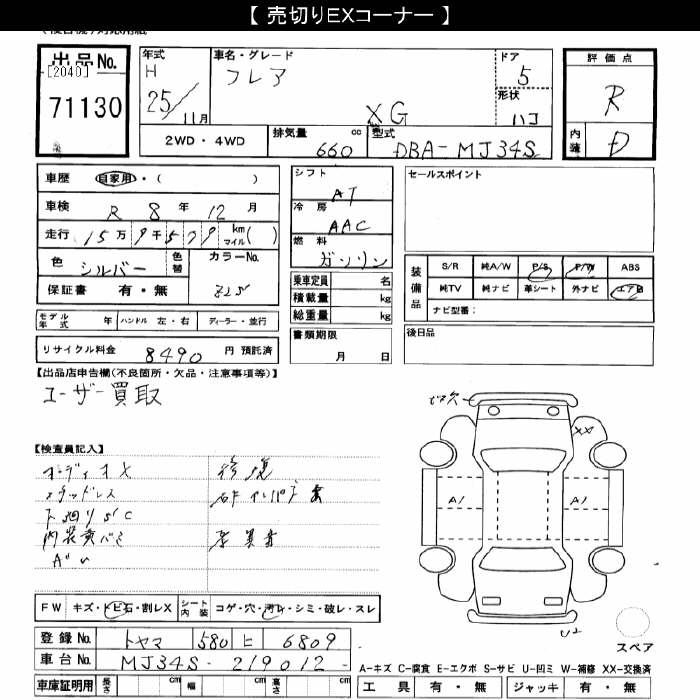 【 売切りEXコーナー 】
出品No.
[2040]
71130
年式
H
25/11月
車名・グレード
フレア
XG
ドア
5
形状
ハコ
評価点
R
内装
D
2WD・4WD
排気量 cc
660
型式
DBA-MJ34S
車歴 自家用・( )
車検 R 8 年 12 月
走行 15万9千579 km マイル( )
色 シルバー 色替
カラーNo.
325
保証書 有・無
モデル年式 年 ハンドル 左・右 ディーラー・並行
リサイクル料金 8490 円 預託済
シフト
AT
冷房
AAC
燃料
ガソリン
乗車定員 名
積載量 kg
総重量 kg
書類期限
月 日
セールスポイント
装備品
S/R 純A/W P/S P/W ABS
純TV 純ナビ 革シート 外ナビ エアB
ナビ型番:
後日品
【出品店申告欄(不良箇所・欠品・注意事項等)】
ユーザー買取
【検査員記入】
オーディオX
スタッドレス
下廻りS C
内装黄バミ
修復
A1
A1
XX
U2
FW キズ・トビ石・割レX シート内装 コゲ・穴・汚レ・シミ・破レ・スレ
登録No. トヤマ 580 ヒ 6809
車台No. MJ34S-219012-
車庫証明用 長さ cm 幅 cm 高さ cm
スペア
A-キズ C-腐食 E-エクボ S-サビ U-凹ミ W-補修 XX-交換済
工具 有・無 ジャッキ 有・無